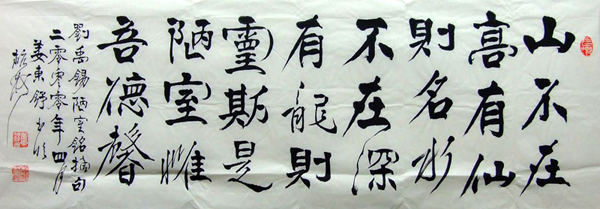 山不在
高有仙
則名水
不在深
有龍則
靈斯是
陋室惟
吾德馨
劉禹錫陋室銘摘句
二零零零年四月
姜東舒書於